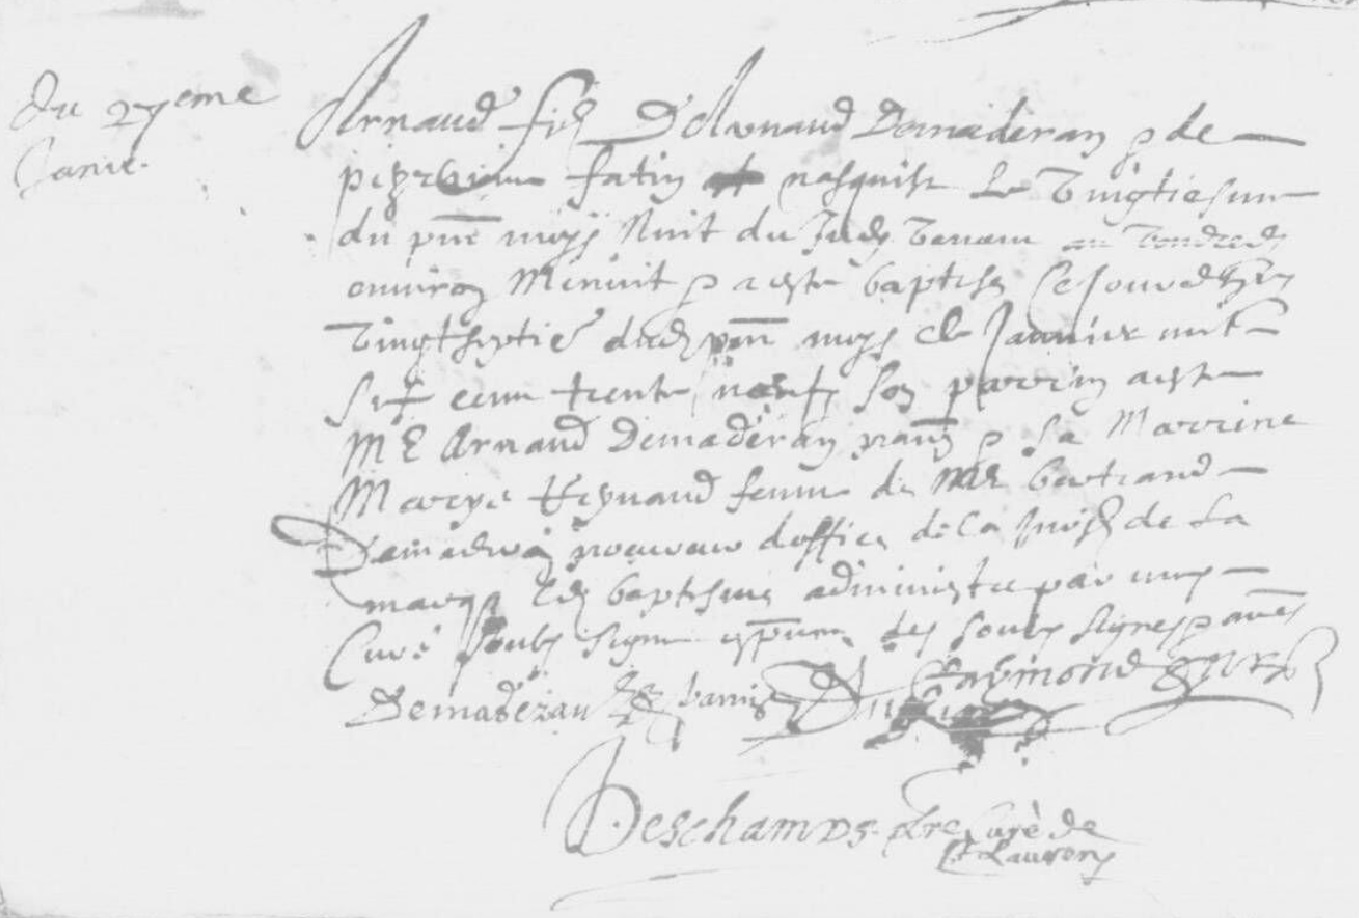 du 27eme
Janvi.
Arnaud fils D'Arnaud Demaderan p de
fatin nasquist Le Vingtiesme
du pnt moys Nuit du Judy Venant au Vendredy
environ Minuit p a este baptise Ce Jourdhuy
Vingtseptie dud pnt moys de Janvier mil
Six cens trente neuf Son parrin a este
ME Arnaud Demaderan p La Marrine
Marye Reynaud femme de Me Bertrand
Demaderan procureur doffice de la Juris de La
marque Led baptesme administre par moy
Curé Soubz signe es pnce des soubz signes p avec
Demaderan Raymond
Deschamps pbre Curé de
St Laurens